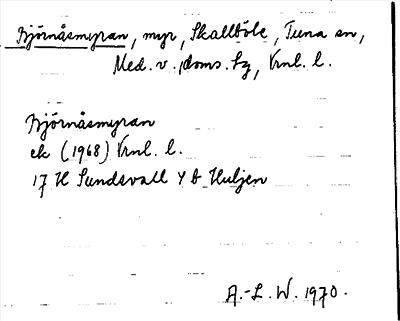 Björnåsmyran, myr, Skallböle, Tuna sn,
Med. v. doms. tg, Vnl. l.
Björnåsmyran
ek (1968) Vnl. l.
17 H Sundsvall 4 b Huljen
A.-L. W. 1970.